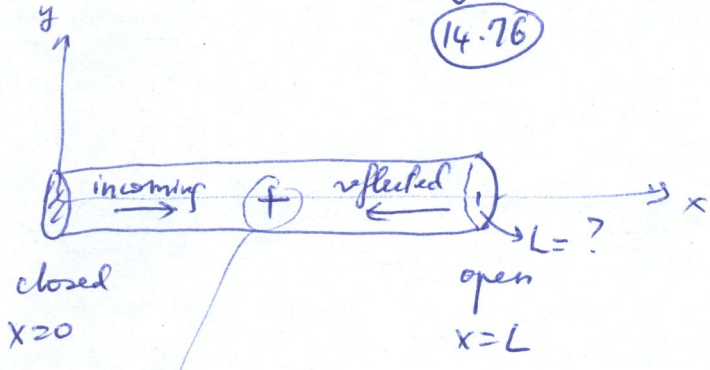 14.76
y
incoming + reflected
x
L = ?
closed
open
x=0
x=L